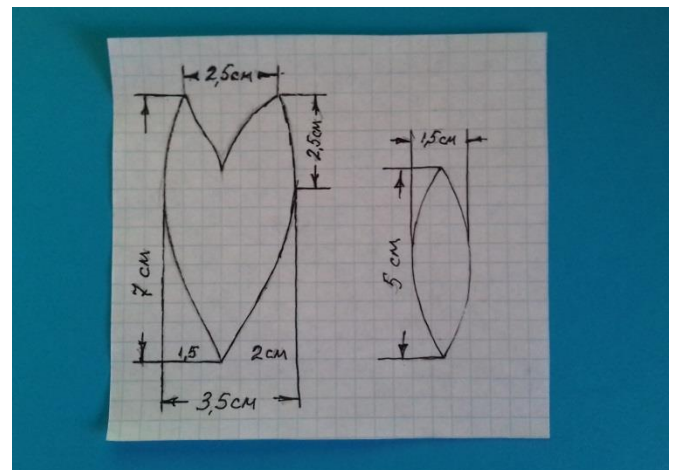 2,5см
2,5см
7 см
1,5
2см
3,5см
1,5см
5 см